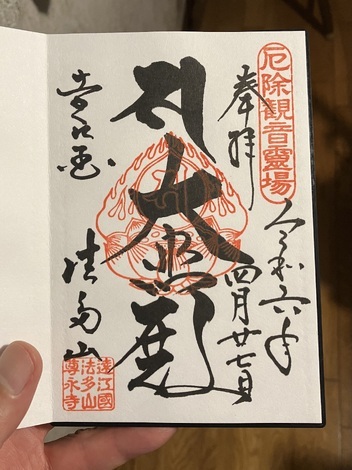 厄除観音靈場
令和六年
四月廿七日
奉拝
大悲殿
法多山
遠江國
法多山
尊永寺